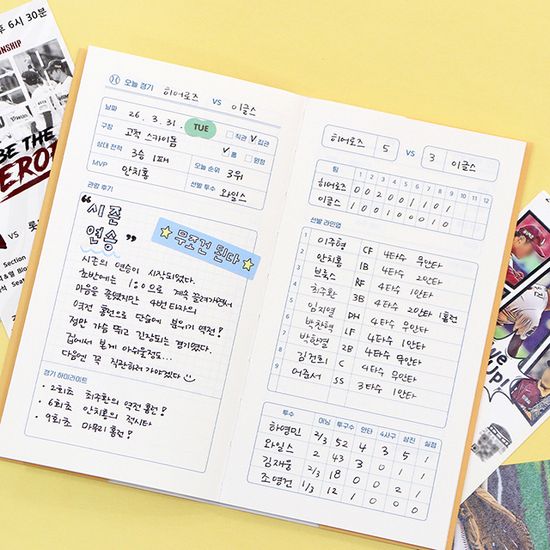 후 6시 30분
IONSHIP
BE THE
HERO
VS
Section
오늘 경기 히어로즈 VS 이글스
날짜 26. 3. 31 TUE 직관 ✓ 집관
구장 고척 스카이돔 ✓ 홈 원정
상대 전적 3승 1패 오늘 순위 3위
MVP 안치홍 선발 투수 와일스
관람 후기
"시즌
연승"
무조건 된다
시즌의 연승이 시작되었다.
초반에는 1:0으로 계속 끌려가면서
마음을 졸였지만 4번 타자의
역전 홈런으로 단숨에 분위기 역전!
정말 가슴 뛰고 긴장되는 경기였다.
집에서 본게 아쉬울정도...
다음엔 꼭 직관하러 가야겠다
경기 하이라이트
• 2회초 최주환의 역전 홈런!
• 6회초 안치홍의 적시타
• 9회초 마무리 홈런!
히어로즈 5 VS 3 이글스
팀 1 2 3 4 5 6 7 8 9 10 11 12
히어로즈 0 0 2 0 0 1 1 0 1
이글스 1 0 0 1 0 0 0 1 0
선발 라인업
1 이주형 CF 4타수 무안타
2 안치홍 1B 4타수 2안타
3 브룩스 RF 4타수 1안타
4 최주환 3B 4타수 2안타 1홈런
5 임지열 DH 4타수 1안타
6 박찬혁 LF 4타수 무안타
7 박한별 2B 4타수 1안타
8 김건희 C 4타수 무안타
9 어준서 SS 3타수 1안타
투수 이닝 투구수 안타 4사구 삼진 실점
하영민 2/3 52 4 3 5 1
와일스 2 43 3 0 1 1
김재웅 2/3 18 0 0 2 1
조영건 1/3 12 1 0 0 0
we
UP!